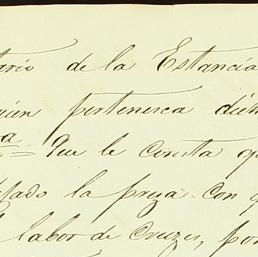 tario de la Estancia
quien pertenesca dich
a = Que le consta q
ado la preza con q
labor de Cruzes, por